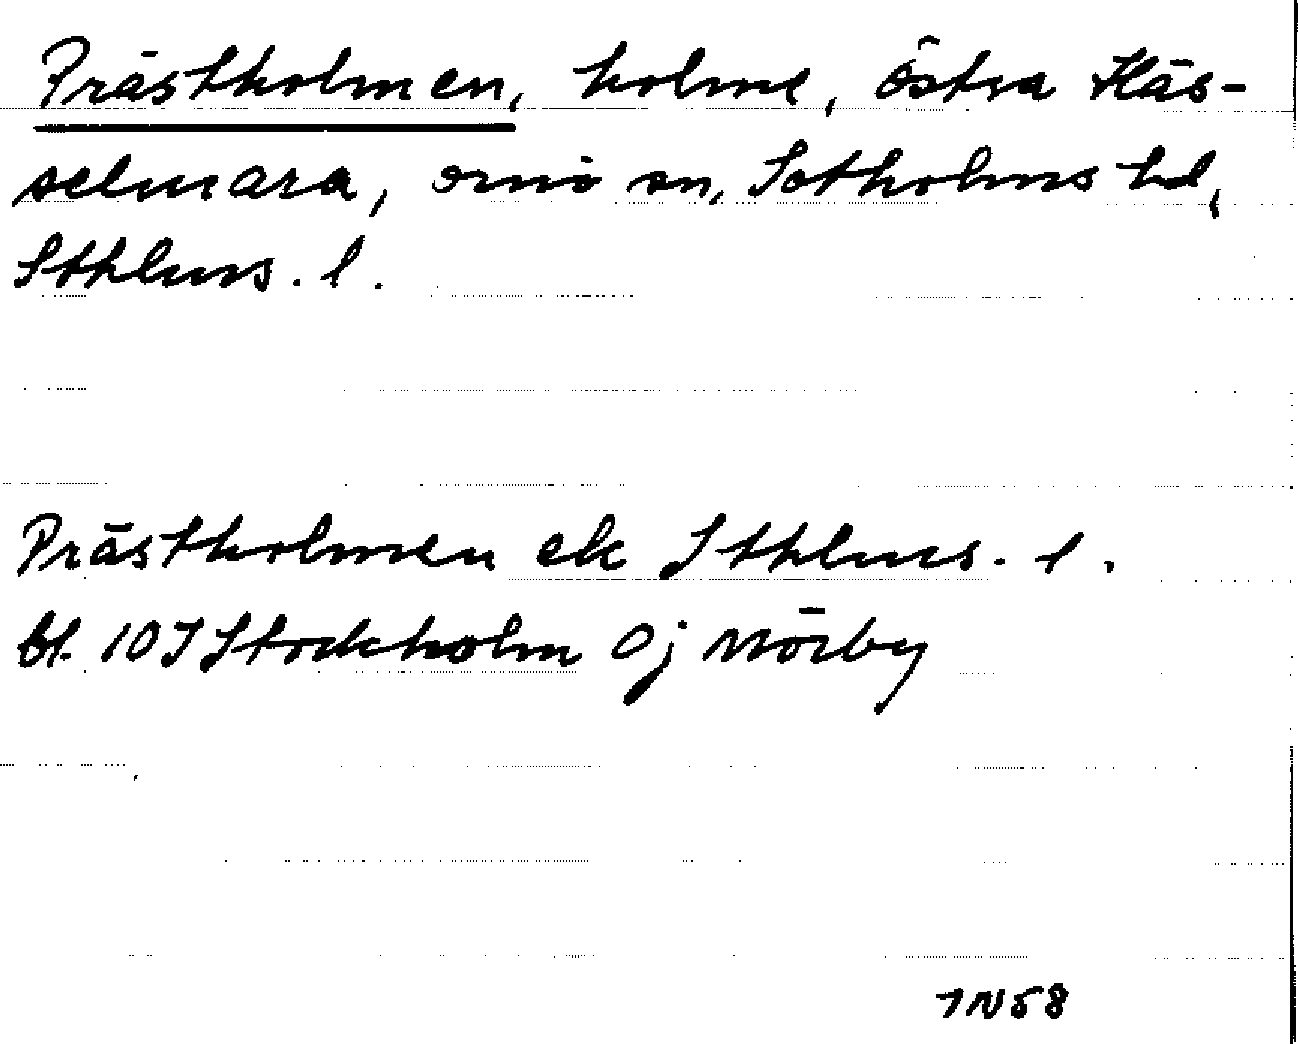 Prästholmen, holme, östra Häs-
selmara, ornö sn, Sotholms hd,
Sthlms. l.
Prästholmen ek Sthlms. l.
bl. 10 J Stockholm Oj Mörby
7N58